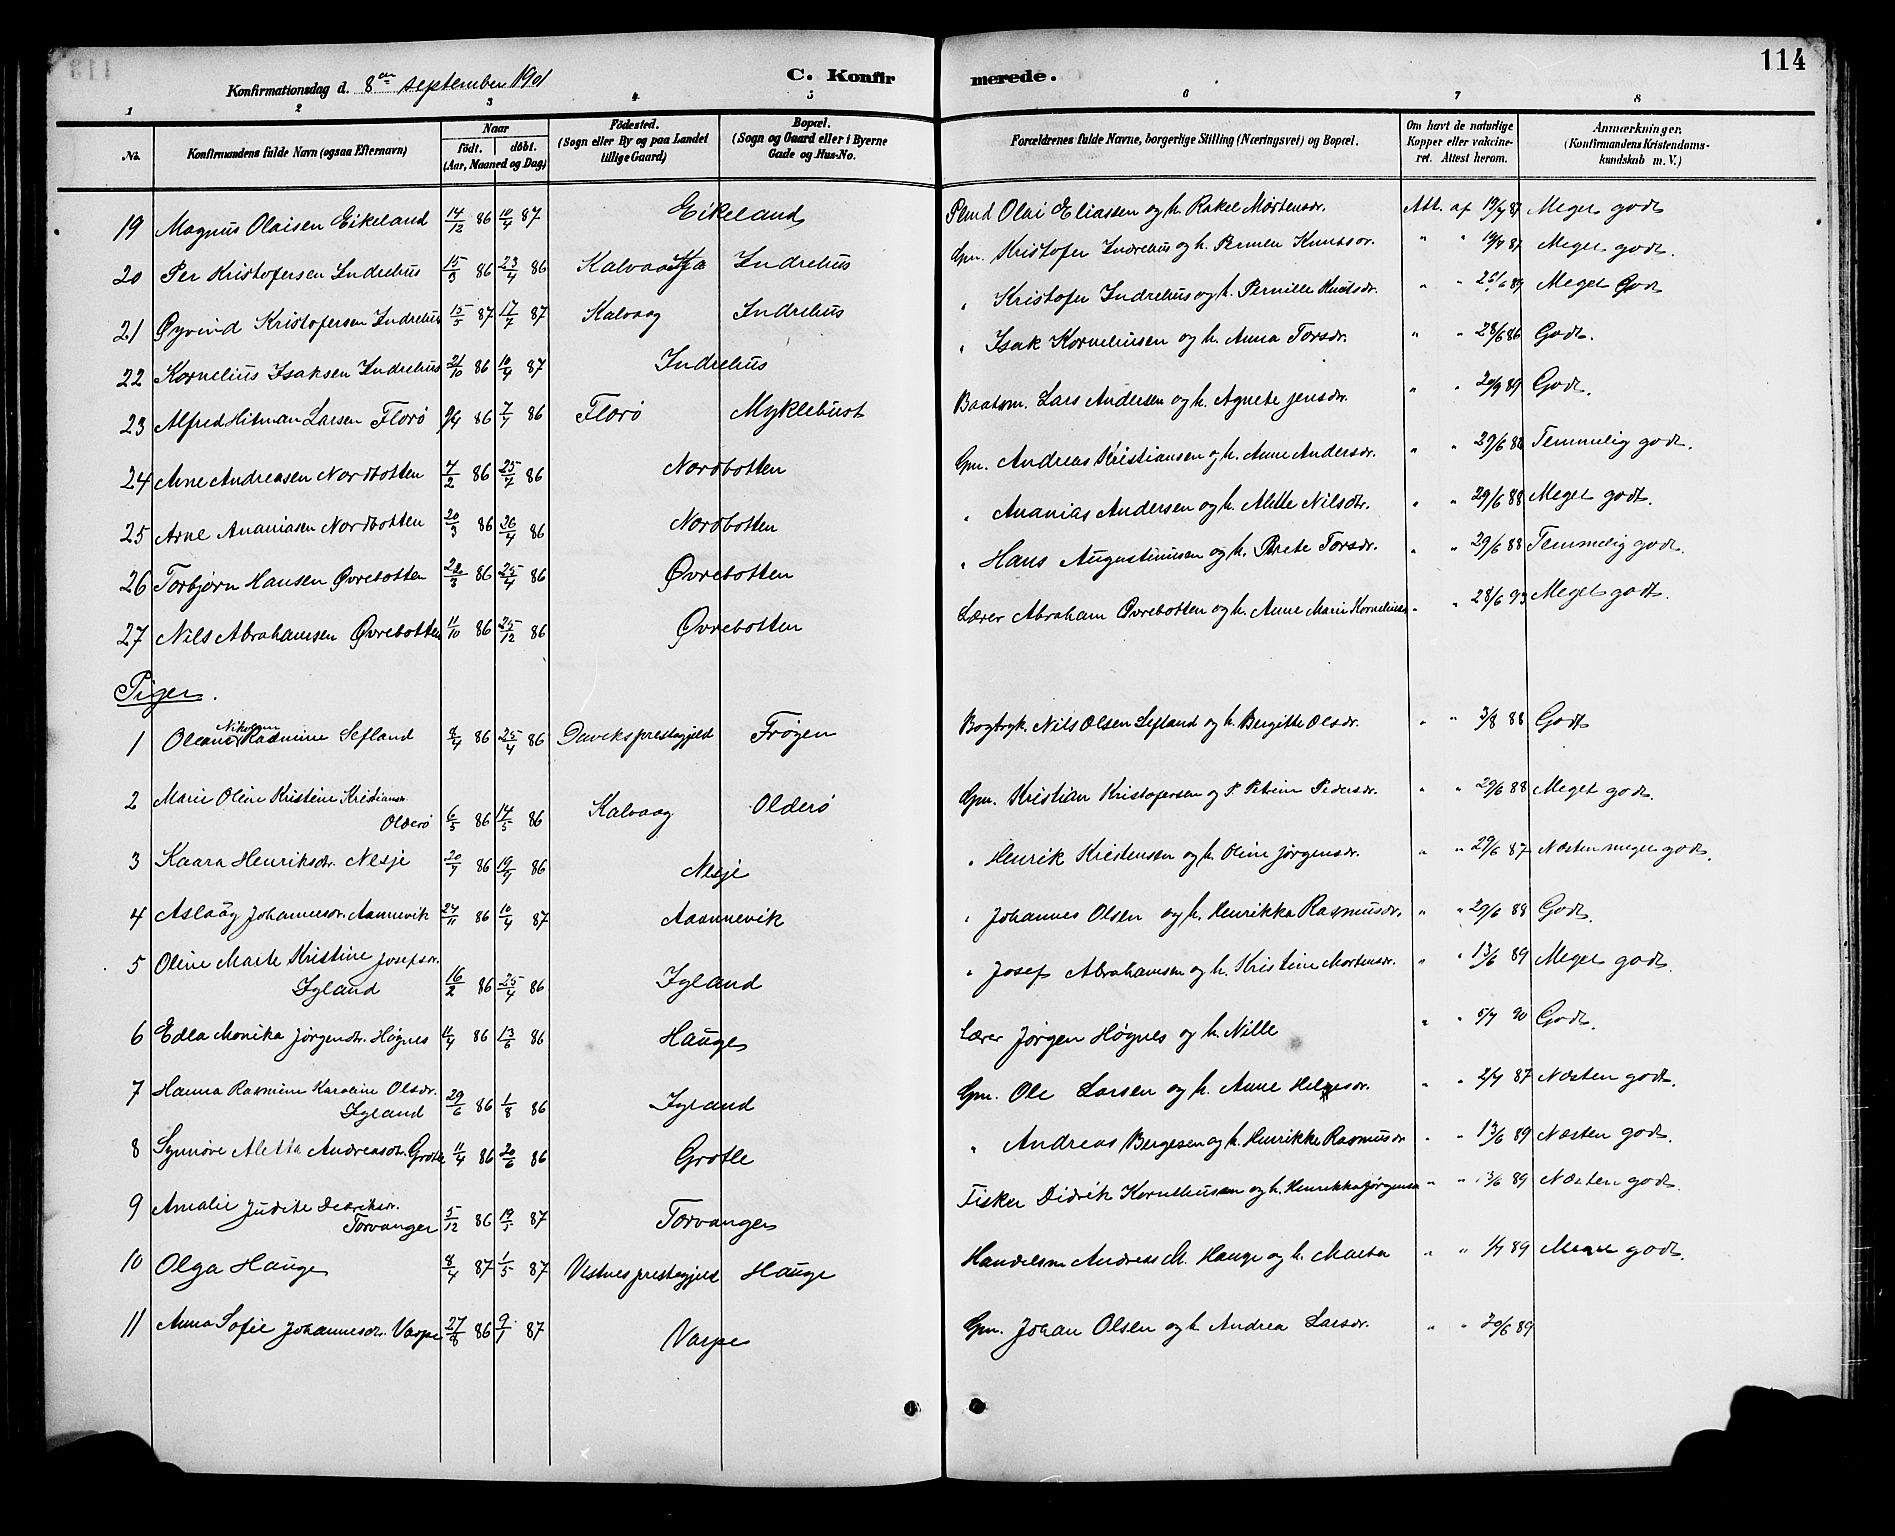 114
Konfirmationsdag d. 8de september 1901
C. Konfirmerede.
1 2 3 4 5 6 7 8
No.
Konfirmandens fulde Navn (ogsaa Efternavn)
Naar
födt. döbt.
(Aar, Maaned og Dag)
Födested.
(Sogn eller By og paa Landet
tillige Gaard)
Bopæl.
(Sogn og Gaard eller i Byerne
Gade og Hus-No.
Forældrenes fulde Navne, borgerlige Stilling (Næringsvei) og Bopæl.
Om havt de naturlige
Kopper eller vakcine-
ret. Attest herom.
Anmærkninger.
(Konfirmandens Kristendoms-
kundskab m. V.)
19 Magnus Olaisen Eikeland 14/12 86 10/4 87 Eikeland Olai Eliassen og h. Rakel Mortensdr. Att. af 19/7 87 Meget godt
20 Per Kristofersen Indrehus 15/3 86 23/4 86 Kalvaag Indrehus Gm. Kristofer Indrehus og h. " " 19/7 87 Meget godt.
21 Øyvind Kristofersen Indrehus 15/5 87 17/7 87 Kalvaag Indrehus " Kristofer Indrehus og h. Pernille Knutsdr. " " Meget Godt
22 Kornelius Isaksen Indrehus 21/10 86 10/4 87 Indrehus " Isak Korneliusen og h. Anna Torsdr. " " 28/6 86 Godt.
23 Alfred Hitman Larsen Florø 86 7/7 86 Florø Myklebust Baatsm. Lars Andersen og h. Agnete Jensdr. " " 20/9 89 Godt.
24 Arne Andreasen Nordbotten 7/2 86 25/4 86 Nordbotten Gm. Andreas Kristiansen og h. Anne Andersdr. " " 29/6 88 Temmelig godt.
25 Arne Ananiasen Nordbotten 20/3 86 26/4 86 Nordbotten " Ananias Andersen og h. Nilsdtr. " " 29/6 88 Meget godt.
26 Torbjørn Hansen Øvrebotten 22/3 86 25/4 86 Øvrebotten " Hans Augustinusen og h. Torsdr. " " 29/6 88 Temmelig godt.
27 Nils Abrahamsen Øvrebotten 11/10 86 25/12 86 Øvrebotten Lærer Abraham Øvrebotten og h. Anne Marie " " 28/6 93 Meget godt.
Piger.
1 Rasmine Sefland 8/4 86 25/4 86 Daviks prestegjeld Frøyen Bogtryk. Nils Olsen Sefland og h. Bergitte Olsdr. " " 3/8 88 Godt
2 Marie Oline Kristine Kristiansdr. Gm. Kristian Kristofersen og Petrine Pedersdr. " " 29/6 88 Meget godt.
Olderø 6/5 86 14/5 86 Kalvaag Olderø
3 Kaara Henriksdr. Nesje 20/7 86 19/9 86 Nesje " Henrik Kristensen og h. Oline Jørgensdr. " " 29/6 87 Næsten meget godt.
4 Aslaug Johannesdr. Aannevik 24/11 86 10/4 87 Aannevik " Johannes Olsen og h. Henrikka Rasmusdr. " " 29/6 88 Godt.
5 Oline Marte Kristine Josefsdr. " Josef Abrahamsen og h. Kristine Mortensdr. " " 13/6 89 Meget godt.
Igland 16/2 86 25/4 86 Igland
6 Edla Monika Jørgensdr. Høgnes 11/4 86 13/6 86 Hauge Lærer Jørgen Høgnes og h. Nille " " 5/7 90 Godt.
7 Hanna Rasmine Karoline Olsdr. Gm. Ole Larsen og h. Anne Helgesdr. " " 2/7 87 Næsten godt.
Igland 29/6 86 1/8 86 Igland
8 Synnøve Aletta Andreasdtr. Grotle 11/4 86 20/6 86 Grotle " Andreas Bergesen og h. Henrikke Rasmusdr " " 13/6 89 Næsten godt.
9 Amalie Judite Didriksdr. Fisker Didrik Korneliussen og h. Henrikka " " 13/6 89 Næsten godt.
Torvanger 5/12 86 19/5 87 Torvanger
10 Olga Hauge 8/4 87 1/5 87 Vestnes prestegjeld Hauge Handelsm Andreas M. Hauge og h. Marta " " 1/7 89 Meget godt.
11 Anna Sofie Johannesdr. Varpe 27/8 86 9/1 87 Varpe Gm. Johan Olsen og h. Andrea Larsdr. " " 89